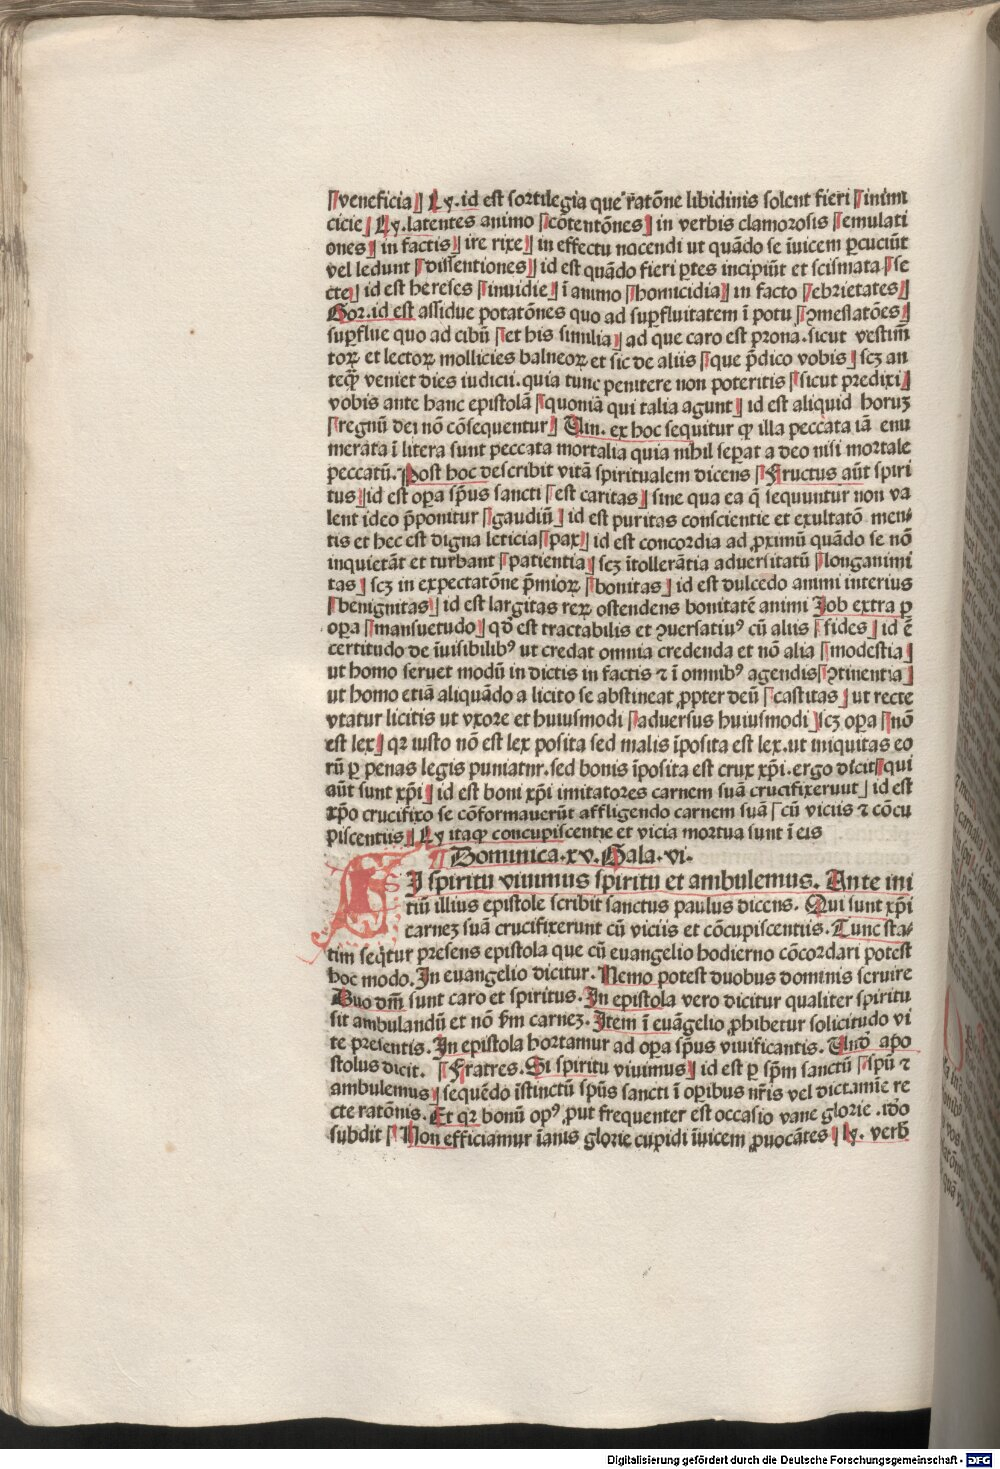 [veneficia] Ly. id est sortilegia que r̄atōne libidinis solent fieri [inimi
cicie] Ly. latentes animo [cōtentōnes] in verbis clamorosis [emulati
ones] in factis] ire rixe] in effectu nocendi ut quādo se īuicem ꝑcuciūt
vel ledunt [dissentiones] id est quādo fieri ꝑtes incipiūt et scismata [se
cte] id est hereses [inuidie] ī animo [homicidia] in facto [ebrietates]
Gor. id est assidue potatōnes quo ad suꝑfluitatem ī potu [ꝯmessatōes]
suꝑflue quo ad cibū [et his similia] ad que caro est prona. sicut vestim̄
toꝝ et lectoꝝ mollicies balneoꝝ et sic de aliis [que p̄dico vobis] scꝫ an
teq̄ꝫ veniet dies iudicii. quia tunc penitere non poteritis [sicut predixi]
vobis ante hanc epistolā [quoniā qui talia agunt] id est aliquid horuꝫ
[regnū dei nō cōsequentur] Vin. ex hoc sequitur ꝙ illa peccata iā enu
merata ī litera sunt peccata mortalia quia nihil seꝑat a deo nisi mortale
peccatū. Post hoc describit vitā spiritualem dicens [Fructus aūt spiri
tus] id est oꝑa sp̄us sancti [est caritas] sine qua ea q̄ sequuntur non va
lent ideo p̄ponitur [gaudiū] id est puritas conscientie et exultatō men-
tis et hec est digna leticia [pax] id est concordia ad ꝓximū quādo se nō
inquietāt et turbant [patientia] scꝫ ītollerātia aduersitatū [longanimi
tas] scꝫ in expectatōne p̄mioꝝ [bonitas] id est dulcedo animi interius
[benignitas] id est largitas reꝝ ostendens bonitatē animi Job extra ꝑ
oꝑa [mansuetudo] qd̄ est tractabilis et ꝯuersatiuꝰ cū aliis [fides] id ē
certitudo de īuisibilibꝰ ut credat omnia credenda et nō alia [modestia]
ut homo seruet modū in dictis in factis ⁊ ī omnibꝰ agendis [ꝯtinentia]
ut homo etiā aliquādo a licito se abstineat ꝓpter deū [castitas] ut recte
vtatur licitis ut vxore et huiusmodi [aduersus huiusmodi] scꝫ oꝑa [nō
est lex] qꝛ iusto nō est lex posita sed malis īposita est lex. ut iniquitas eo
rū ꝑ penas legis puniatur. sed bonis īposita est crux xp̄i. ergo dicit [qui
aūt sunt xp̄i] id est boni xp̄i imitatores carnem suā crucifixerunt] id est
xp̄o crucifixo se cōformauerūt affligendo carnem suā [cū viciis ⁊ cōcu
piscentiis] Ly itaqꝫ concupiscentie et vicia mortua sunt ī eis
¶ Dominica. xv. Gala. vi.
SI spiritu viuimus spiritu et ambulemus. Ante ini
tiū illius epistole scribit sanctus paulus dicens. Qui sunt xp̄i
carneꝫ suā crucifixerunt cū viciis et cōcupiscentiis. Tunc sta-
tim seq̄tur presens epistola que cū euangelio hodierno cōcordari potest
hoc modo. In euangelio dicitur. Nemo potest duobus dominis seruire
Duo dn̄i sunt caro et spiritus. In epistola vero dicitur qualiter spiritu
sit ambulandū et nō s̄m carneꝫ. Item ī euāgelio ꝓhibetur solicitudo vi
te presentis. In epistola hortamur ad oꝑa sp̄us viuificantis. Vnd̄ apo
stolus dicit. [Fratres. Si spiritu viuimus] id est ꝑ sp̄m sanctū [sp̄u ⁊
ambulemus] sequēdo īstinctū sp̄us sancti ī oꝑibus nr̄is vel dictamīe re
cte ratōnis. Et qꝛ bonū opꝰ ꝓut frequenter est occasio vane glorie. id̄o
subdit [Non efficiamur īanis glorie cupidi īuicem ꝓuocātes] ly. verb̄
Digitalisierung gefördert durch die Deutsche Forschungsgemeinschaft - DFG